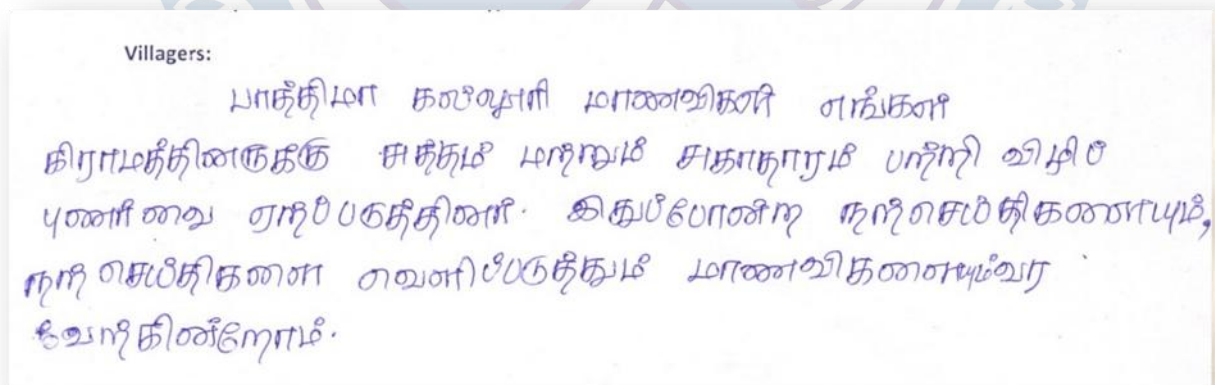 Villagers:
பாத்திமா கல்லூரி மாணவிகள் எங்கள்
கிராமத்தினருக்கு சுத்தம் மற்றும் சுகாதாரம் பற்றி விழிப்
புணர்வை ஏற்படுத்தினர். இதுப்போன்ற நற்செய்திகளையும்,
நற்செய்திகளை வெளிப்படுத்தும் மாணவிகளையும்வர
வேற்கின்றோம்.